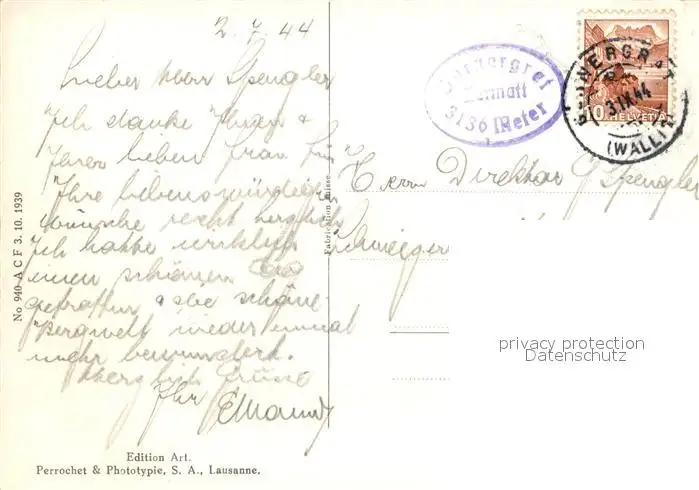 2. 7. 44
Lieber Herr Spengler
Ich danke Ihnen &
Ihrer lieben Frau für
Ihre liebenswürdigen
wünsche recht herzlich
Ich habe wirklich
einen schönen
getroffen & die schöne
Bergwelt wieder einmal
mehr bewundert.
Herzlich Grüsse
Ihr
Gornergrat
Zermatt
3136 Meter
GORNERGRAT
3.IX.44
(WALLIS)
10 HELVETIA
Herrn Direktor G Spengler
No 940 A C F 3. 10. 1939
Fabrication Suisse
privacy protection
Datenschutz
Edition Art.
Perrochet & Phototypie, S. A., Lausanne.